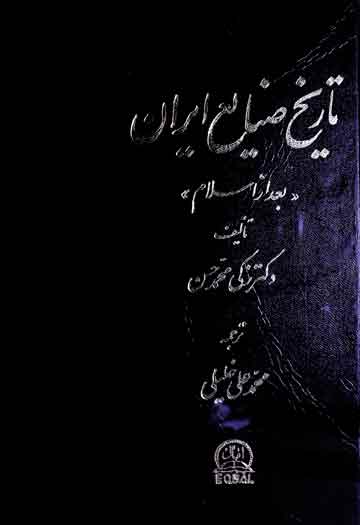 تاریخ صنایع ایران
«بعد از اسلام»
تألیف
دکتر زکی محمد حسن
ترجمه
محمد علی خلیلی
اقبال
EQBAL